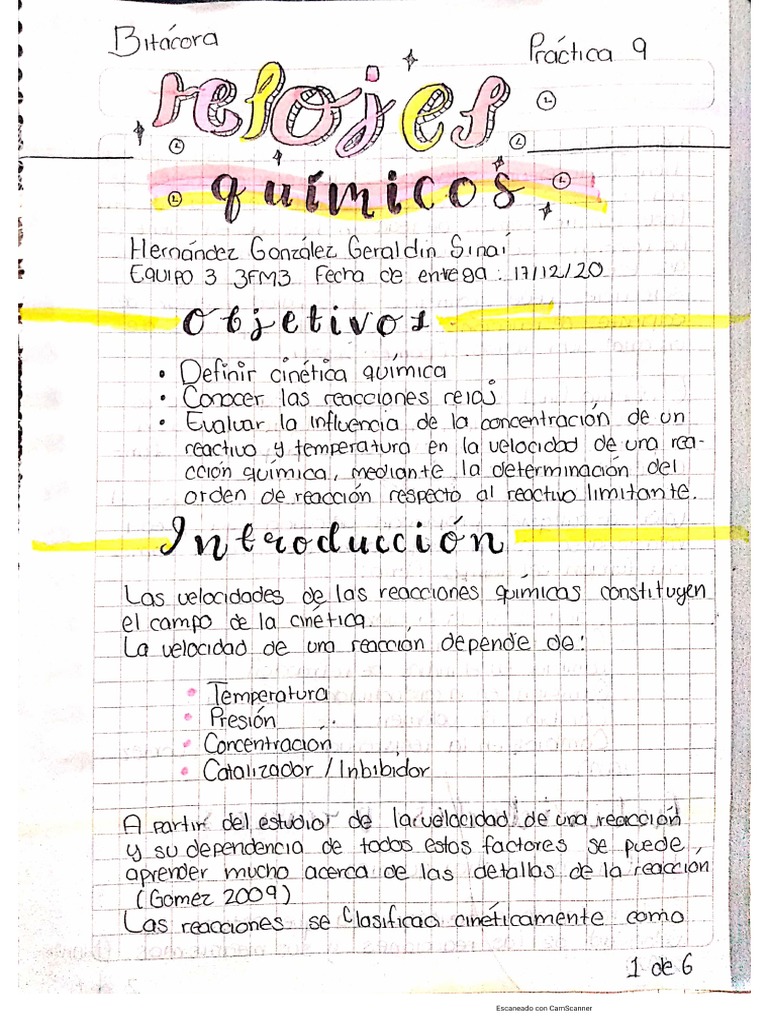 Bitácora
Práctica 9
relojes
químicos
Hernández González Geraldin Sinaí
Equipo 3 3FM3 Fecha de entrega: 17/12/20
Objetivos
• Definir cinética química
• Conocer las reacciones reloj
• Evaluar la influencia de la concentración de un
reactivo y temperatura en la velocidad de una rea-
cción química, mediante la determinación del
orden de reacción respecto al reactivo limitante.
Introducción
Las velocidades de las reacciones químicas constituyen
el campo de la cinética.
La velocidad de una reacción depende de:
• Temperatura
• Presión
• Concentración
• Catalizador / Inhibidor
A partir del estudio de la velocidad de una reacción
y su dependencia de todos estos factores se puede,
aprender mucho acerca de las detallas de la reacción
(Gomez 2009)
Las reacciones se clasificao cinéticamente como
1 de 6
Escaneado con CamScanner